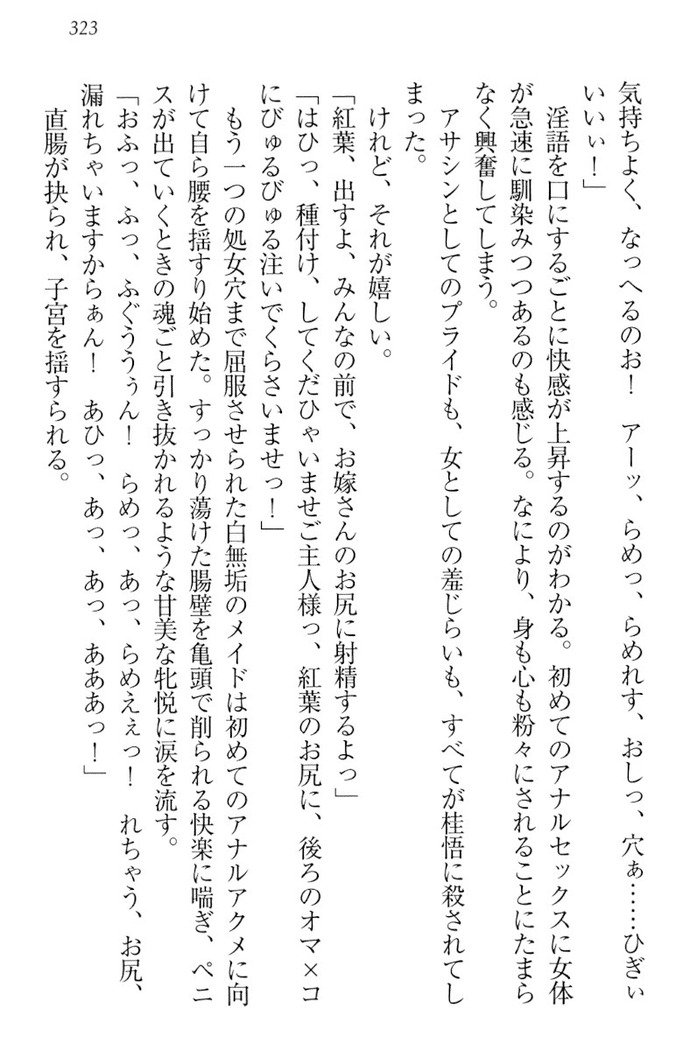 323
気持ちよく、なっへるのお！　アーッ、らめっ、らめれす、おしっ、穴ぁ……ひぎぃ
いいぃ！」
　淫語を口にするごとに快感が上昇するのがわかる。初めてのアナルセックスに女体
が急速に馴染みつつあるのも感じる。なにより、身も心も粉々にされることにたまら
なく興奮してしまう。
　アサシンとしてのプライドも、女としての羞じらいも、すべてが桂悟に殺されてし
まった。
　けれど、それが嬉しい。
「紅葉、出すよ、みんなの前で、お嫁さんのお尻に射精するよっ」
「はひっ、種付け、してくだひゃいませご主人様っ、紅葉のお尻に、後ろのオマ×コ
にびゅるびゅる注いでくらさいませっ！」
　もう一つの処女穴まで屈服させられた白無垢のメイドは初めてのアナルアクメに向
けて自ら腰を揺すり始めた。すっかり蕩けた腸壁を亀頭で削られる快楽に喘ぎ、ペニ
スが出ていくときの魂ごと引き抜かれるような甘美な牝悦に涙を流す。
「おふっ、ふっ、ふぐううぅん！　らめっ、あっ、らめえぇっ！　れちゃう、お尻、
漏れちゃいますからぁん！　あひっ、あっ、あっ、あああっ！」
　直腸が抉られ、子宮を揺すられる。